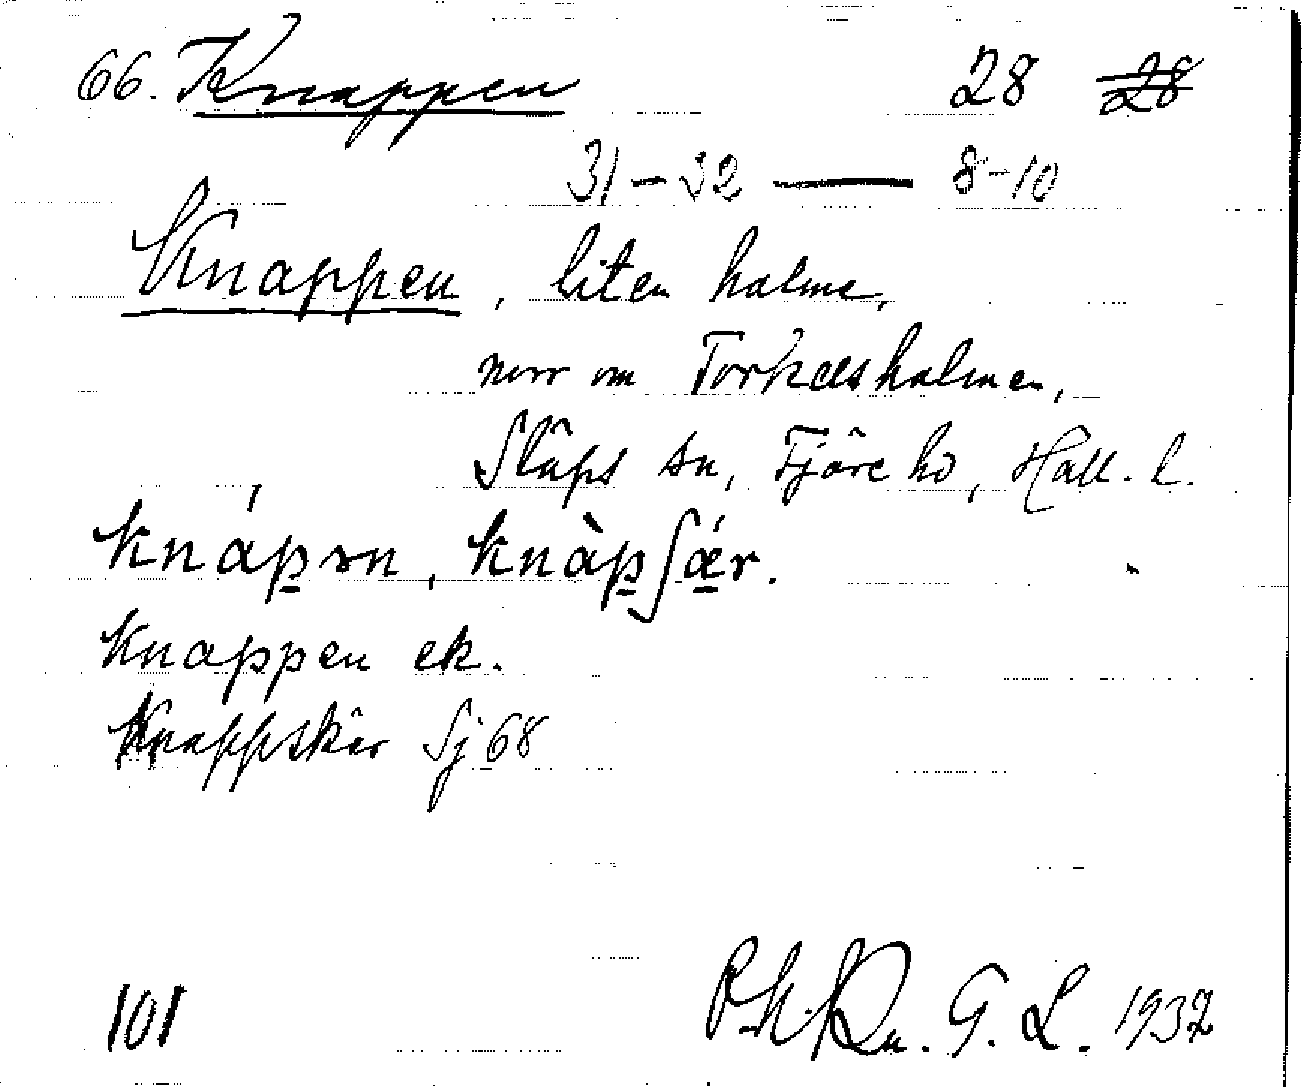 66. Knappen 28 28
31-32 — 8-10
Knappen, liten holme,
norr om Torkelsholmen,
Släps sn, Fjäre hd, Hall. l.
knápən, knàpʃǽr.
Knappen ek.
Knappskär Sj 68
101 G. L. 1932